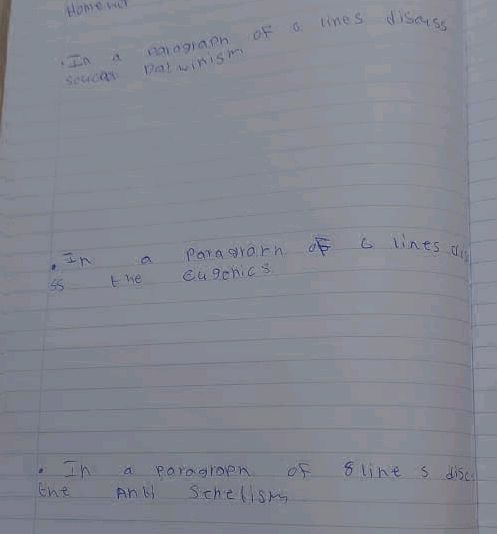 Homewor
. In a paragraph of 6 lines discuss
Darwinism
. In a Paragrarh of 6 lines dis
ss the Eugenics
• In a Paragraph of 8 line s disc
the Anti